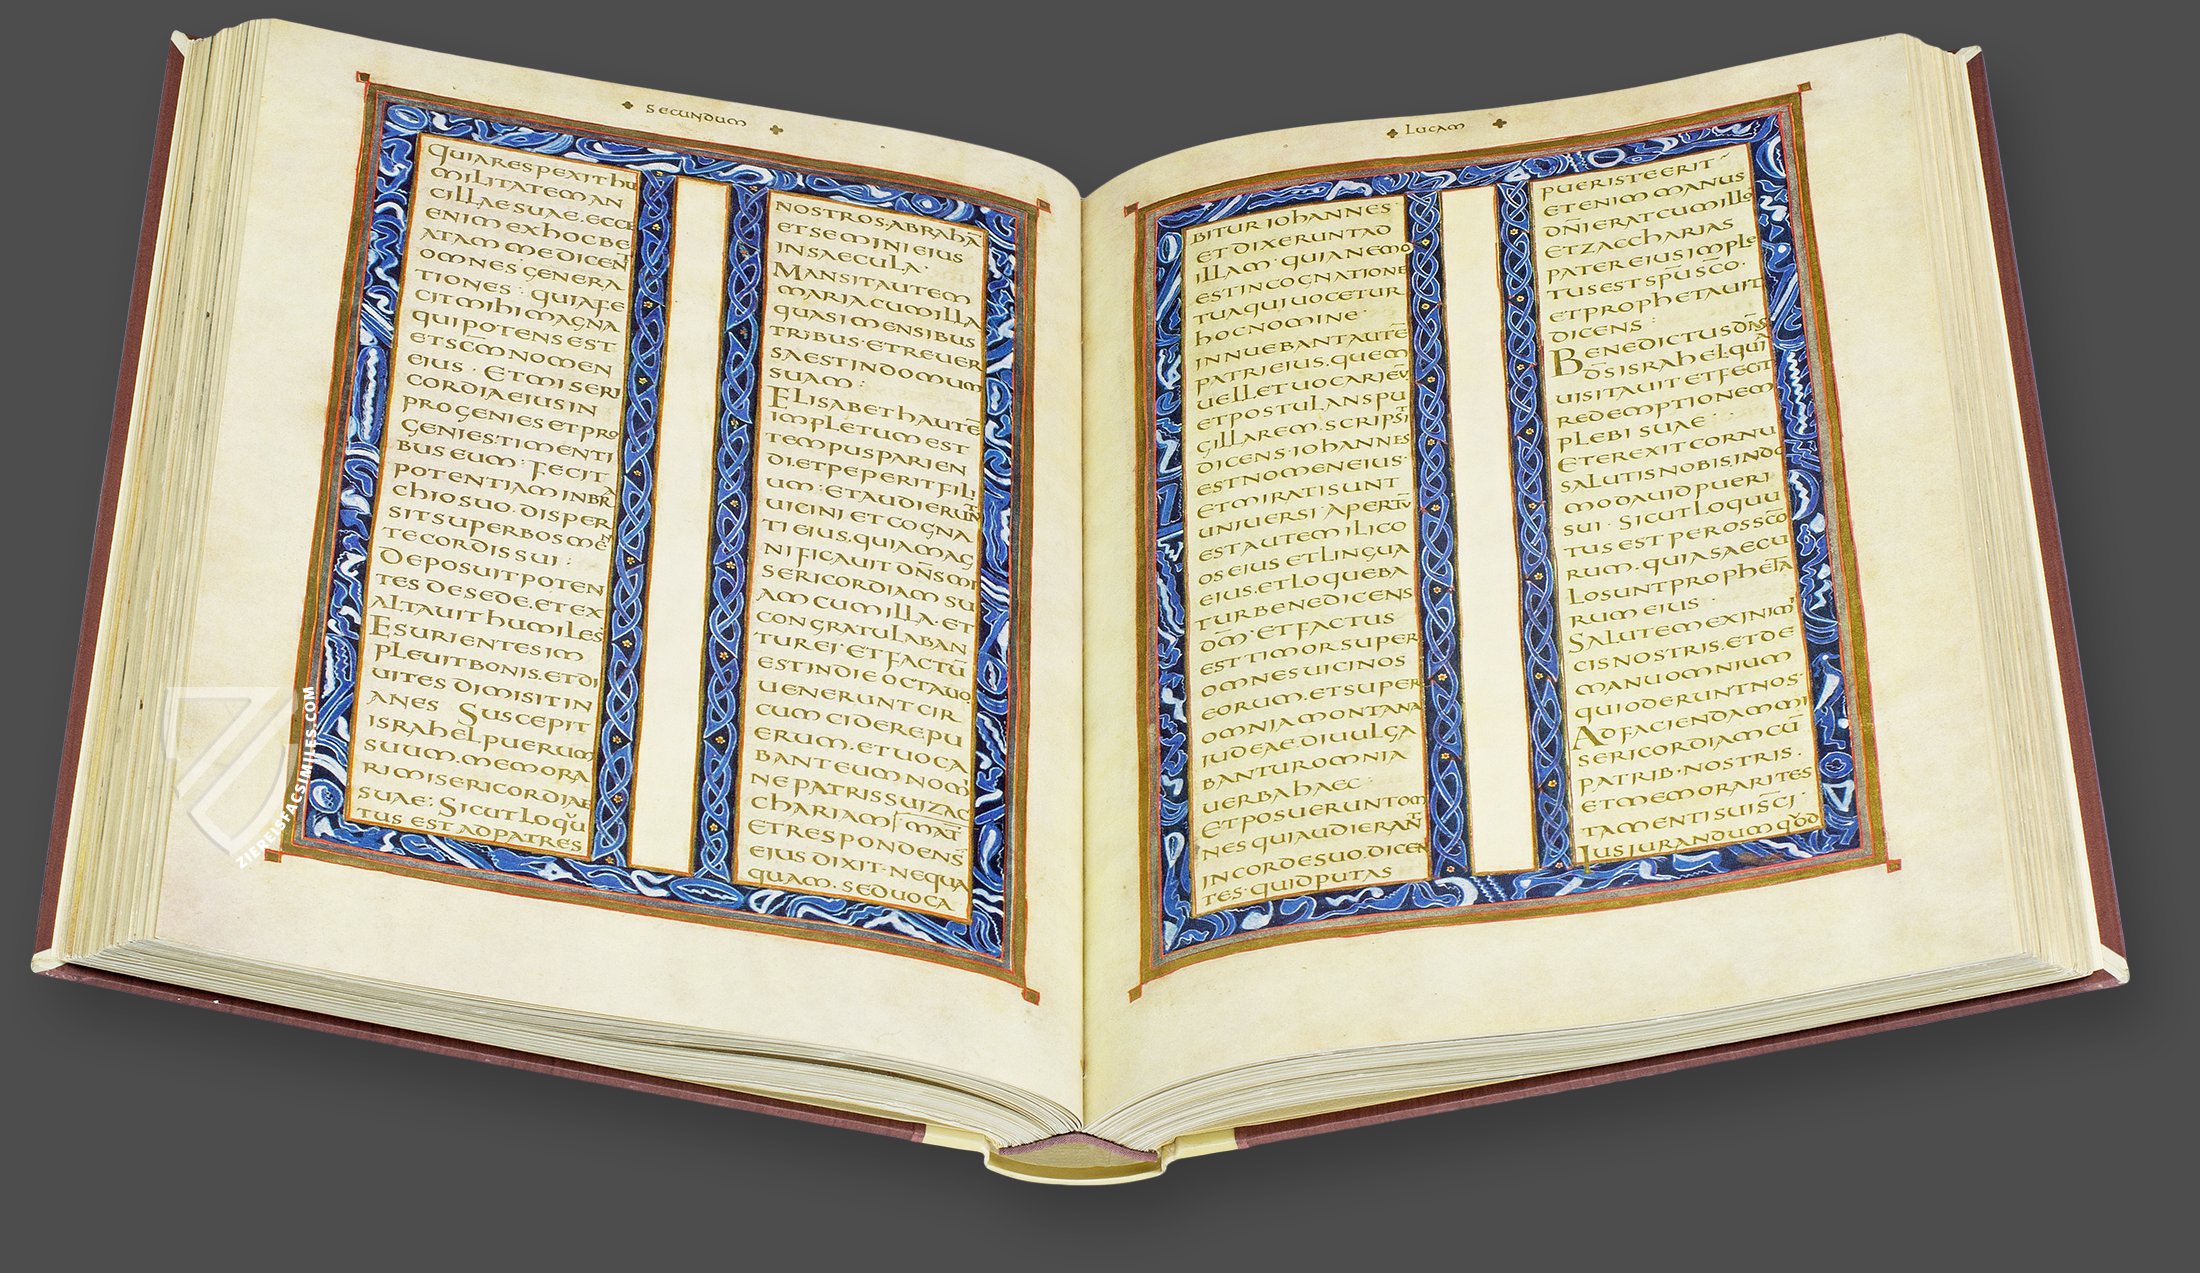 SECUNDUM
QUIARESPEXITHU
MILITATEMAN
CILLAESUAE. ECCE
ENIM EXHOCBE
ATAM MEDICEÑT
OMNES GENERA
TIONES : QUIAFE
CITMIHIMAGNA
QUIPOTENSEST
ETSC̅MNOMEN
EIUS · ETMISERI
CORDIAEIUSIN
PROGENIES ETPRO
GENIESTIMENTI
BUS EUM · FECIT
POTENTIAMINBRA
CHIOSUO. DISPER
SITSUPERBOSMEN
TECORDISSUI :
DEPOSUITPOTEN
TES DESEDE. ETEX
ALTAUITHUMILES
ESURIENTESIM
PLEUITBONIS. ETDI
UITES DIMISITIN
ANES SUSCEPIT
ISRAHELPUERUM
SUUM. MEMORA
RIMISERICORDIAE
SUAE; SICUTLOQU
TUS ESTADPATRES
NOSTROS. ABRAHĀ
ETSEMINIEIUS
INSAECULA ·
MANSITAUTEM
MARIACUMILLA
QUASIMENSIBUS
TRIBUS · ETREUER
SAESTINDOMUM
SUAM :
ELISABETHAUTĒ
IMPLETUMEST
TEMPUSPARIEN
DI. ETPEPERITFILI
UM : ETAUDIERUNT
UICINI ETCOGNA
TIEIUS. QUIAMAG
NIFICAUIT DN̅SMI
SERICORDIAM SU
AM CUMILLA · ET
CONGRATULABAN
TUREI · ETFACTŪ
ESTINDIE OCTAUO
UENERUNT CIR
CUM CIDEREPU
ERUM. ETUOCA
BANTEUMNOMI
NEPATRISSUIZAC
CHARIAM MAT̅
ETRESPONDENS
EIUS DIXIT · NEQUA
QUAM. SEDUOCA
LUCAM
BITURIOHANNES ·
ETDIXERUNTAD
ILLAM · QUIANEMO
ESTINCOGNATIONE
TUAQUIUOCETUR
HOCNOMINE ·
INNUEBANTAUTĒ
PATRIEIUS. QUEM
UELLETUOCARIEŪ
ETPOSTULANSPU
GILLAREM. SCRIPSIT
DICENS · IOHANNES
ESTNOMENEIUS ·
ETMIRATISUNT
UNIUERSI · APERTŪ
ESTAUTEMILICO
OSEIUS ETLINGUA
EIUS. ETLOQUEBA
TURBENEDICENS
DM̅ · ETFACTUS
ESTTIMORSUPER
OMNESUICINOS
EORUM. ETSUPER
OMNIAMONTANA
IUDEAE. DIUULGA
BANTUROMNIA
UERBAHAEC ·
ETPOSUERUNTOM
NESQUIAUDIERANT
INCORDESUO. DICEN
TES · QUIDPUTAS
PUERISTEERIT
ETENIMMANUS
DN̅IERATCUMILLO
ETZACCHARIAS
PATEREIUSIMPLE
TUSESTSPU̅SC̅O ·
ETPROPHETAUIT
DICENS :
BENEDICTUSDN̅S
DS̅ISRAHEL. QUIA
UISITAUIT ETFECIT
REDEMPTIONEM
PLEBI SUAE ·
ETEREXITCORNU
SALUTISNOBIS. INDO
MODAUIDPUERI
SUI · SICUTLOQUU
TUSEST PEROSSC̅O
RUM. QUIASAECU
LOSUNTPROPHETA
RUMEIUS ·
SALUTEMEXINIMI
CISNOSTRIS. ETDE
MANUOMNIUM
QUIODERUNTNOS ·
ADFACIENDAMMI
SERICORDIAMCŪ
PATRIB · NOSTRIS ·
ETMEMORARITES
TAMENTISUISC̅I ·
IUSIURANDUM QUOD
ZIEREISFACSIMILES.COM